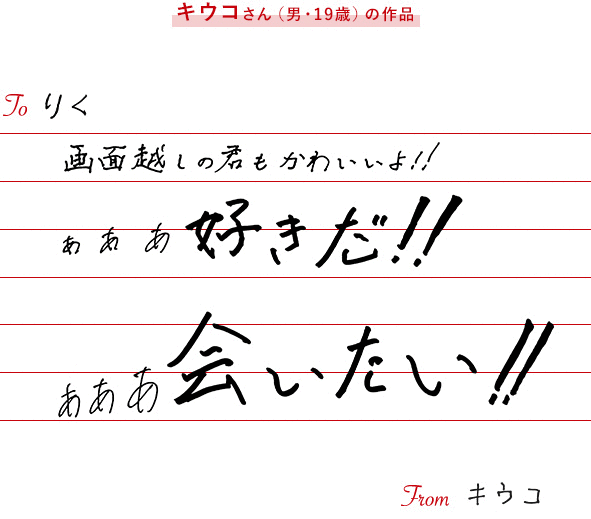 キウコさん（男・19歳）の作品
To りく
画面越しの君もかわいいよ!!
ぁぁあ好きだ!!
ぁああ会いたい!!
From キウコ